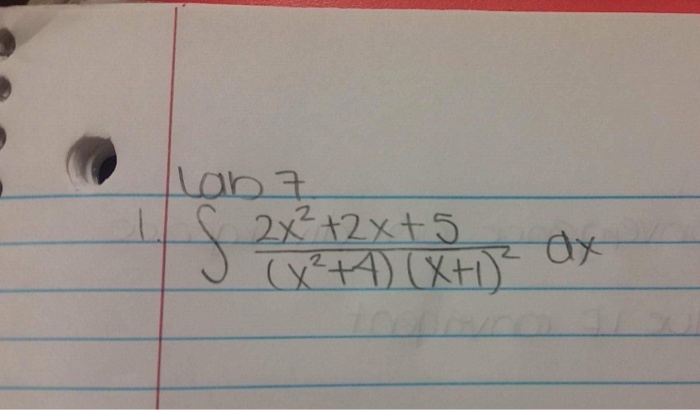 Lab 7
1. ∫ (2x²+2x+5)/((x²+4)(x+1)²) dx